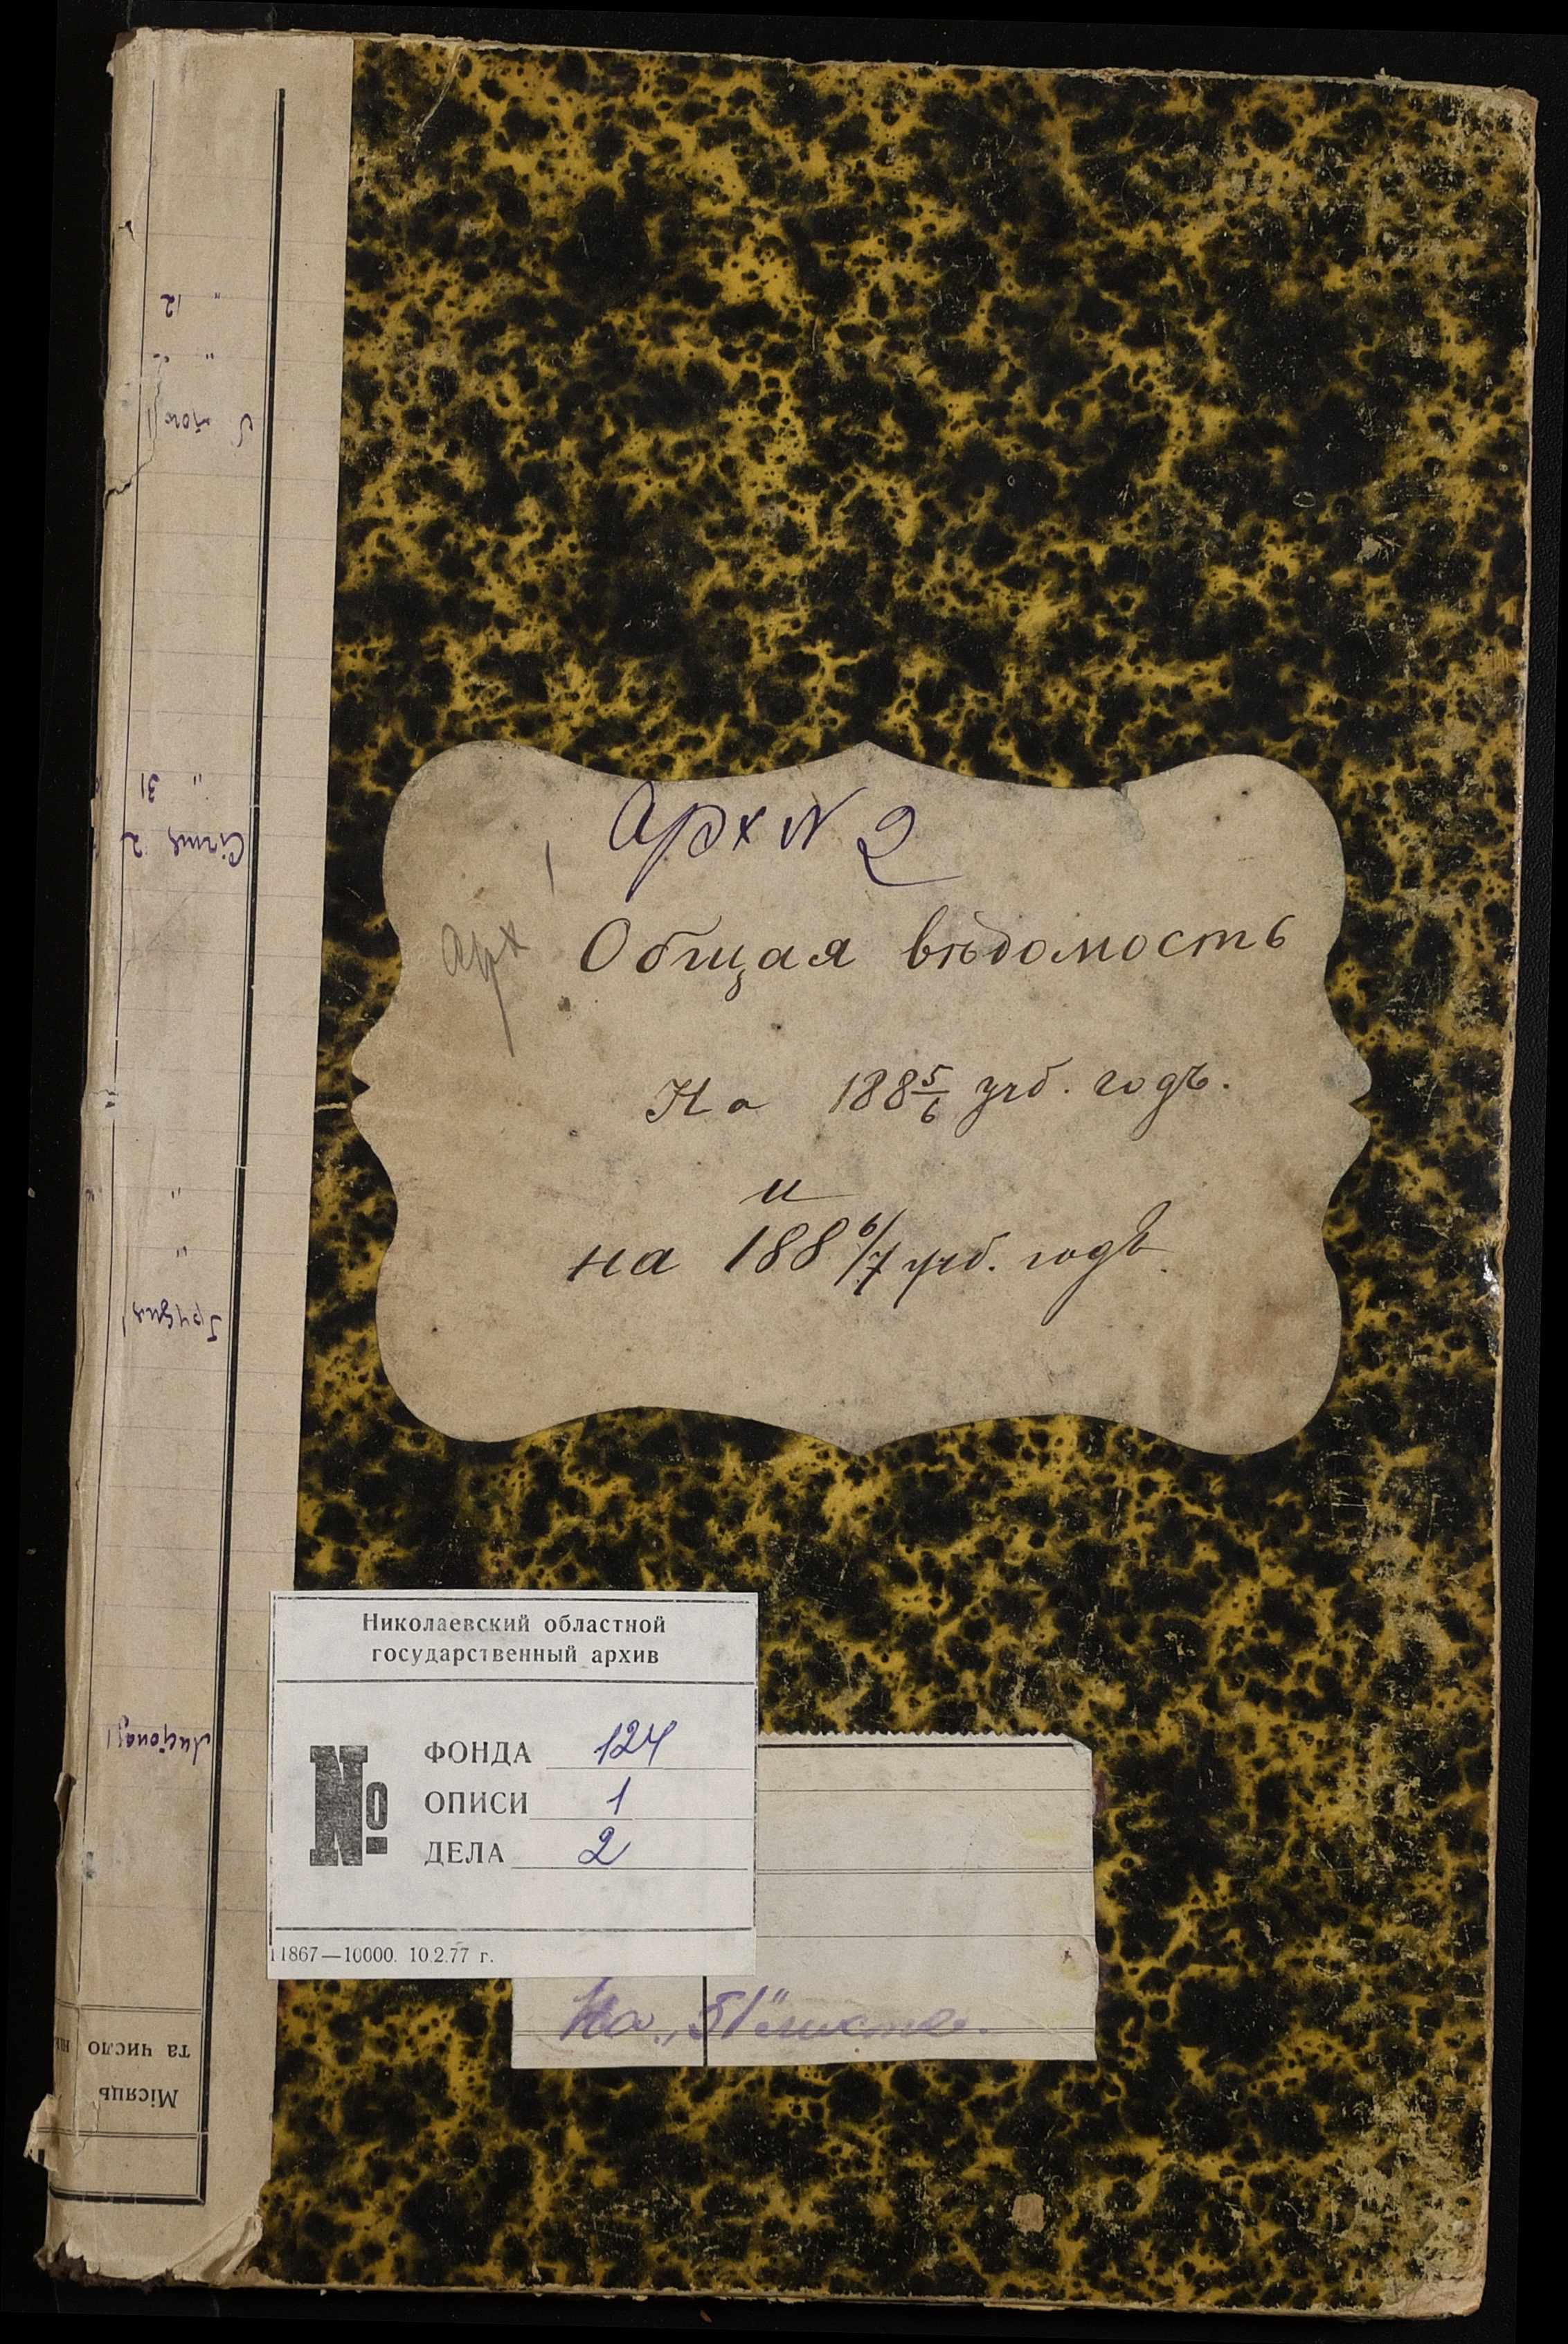 Арх N 2
Арх
Общая вѣдомость
На 188 5/6 учб. годъ.
и
на 188 6/7 учб. годъ.
Николаевский областной
государственный архив
№
ФОНДА 124
ОПИСИ 1
ДЕЛА 2
11867—10000. 10.2.77 г.
На „51" листе.
" 12
" 31
Січня 2
"
"
Грудня
Листопад
Місяць
та число